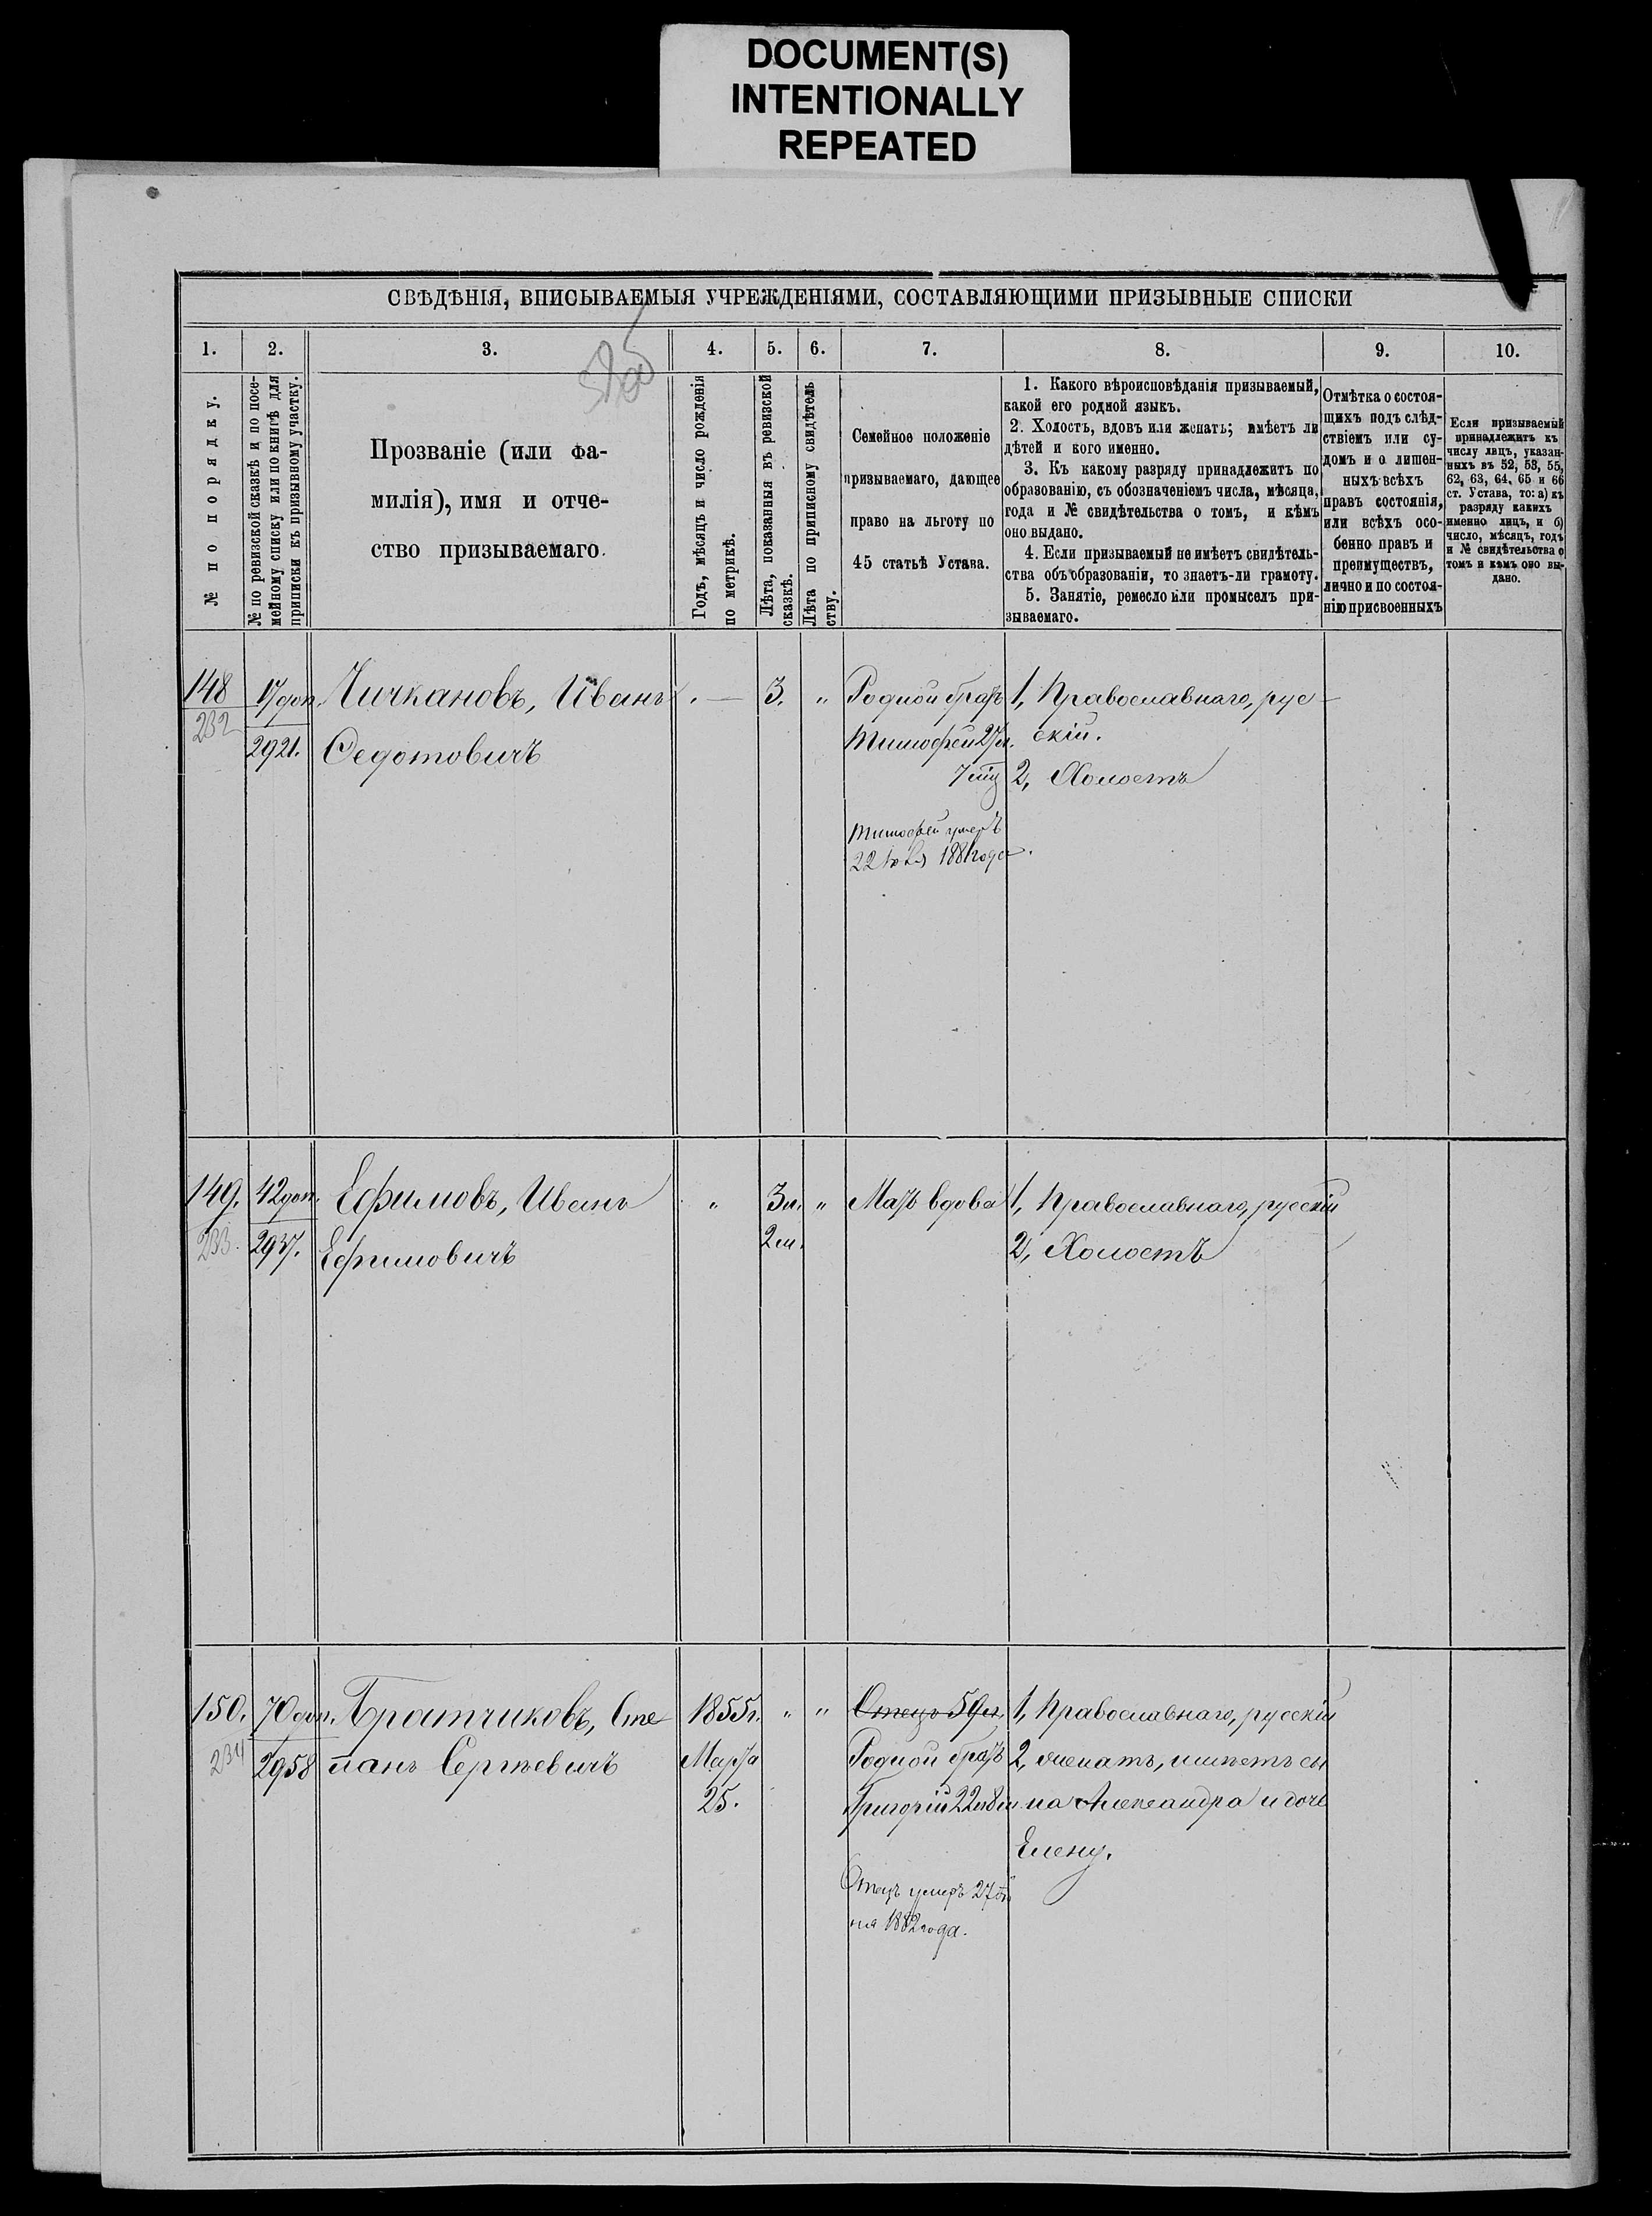 DOCUMENT(S)
INTENTIONALLY
REPEATED
СВѢДѢНІЯ, ВПИСЫВАЕМЫЯ УЧРЕЖДЕНІЯМИ, СОСТАВЛЯЮЩИМИ ПРИЗЫВНЫЕ СПИСКИ
1. 2. 3. 4. 5. 6. 7. 8. 9. 10.
№ по порядку.
№ по ревизской сказкѣ и по посе-
мейному списку или по книгѣ для
приписки къ призывному участку.
Прозваніе (или фа-
милія), имя и отче-
ство призываемаго.
Годъ, мѣсяцъ и число рожденія
по метрикѣ.
Лѣта, показанныя въ ревизской
сказкѣ.
Лѣта по приписному свидѣтель
ству.
Семейное положеніе
призываемаго, дающее
право на льготу по
45 статьѣ Устава.
1. Какого вѣроисповѣданія призываемый,
какой его родной языкъ.
2. Холостъ, вдовъ или женатъ; имѣетъ ли
дѣтей и кого именно.
3. Къ какому разряду принадлежитъ по
образованію, съ обозначеніемъ числа, мѣсяца,
года и № свидѣтельства о томъ, и кѣмъ
оно выдано.
4. Если призываемый не имѣетъ свидѣтель-
ства объ образованіи, то знаетъ-ли грамоту.
5. Занятіе, ремесло или промыселъ при-
зываемаго.
Отмѣтка о состоя-
щихъ подъ слѣд-
ствіемъ или су-
домъ и о лишен-
ныхъ всѣхъ
правъ состоянія,
или всѣхъ осо-
бенно правъ и
преимуществъ,
лично и по состоя-
нію присвоенныхъ
Если призываемый
принадлежитъ къ
числу лицъ, указан-
ныхъ въ 52, 53, 55,
62, 63, 64, 65 и 66
ст. Устава, то: а) къ
разряду какихъ
именно лицъ, и б)
число, мѣсяцъ, годъ
и № свидѣтельства о
томъ и кѣмъ оно вы-
дано.
148 17 доп. Чичкановъ, Иванъ " — 3. " Родной братъ 1, Православнаго, рус-
232 2921. Ѳедотовичъ Тимофей 27 л. скій.
7 мц 2, Холостъ
Тимофей умеръ
22 1881 года.
149. 42 доп. Ефимовъ, Иванъ " 3 л. " Мать вдова 1, Православнаго, русскій
233. 2937. Ефимовичъ 2 м. 2, Холостъ
150. 70 доп. Братчиковъ, Сте 1855 г. " " Отецъ 59 л. 1, Православнаго, русскій
234 2958 панъ Сергѣевичъ Марта Родной братъ 2, женатъ, имѣетъ сы
25. Григорій 22 л 8 м на Александра и дочь
Елену.
Отецъ умеръ 27
1882 года.